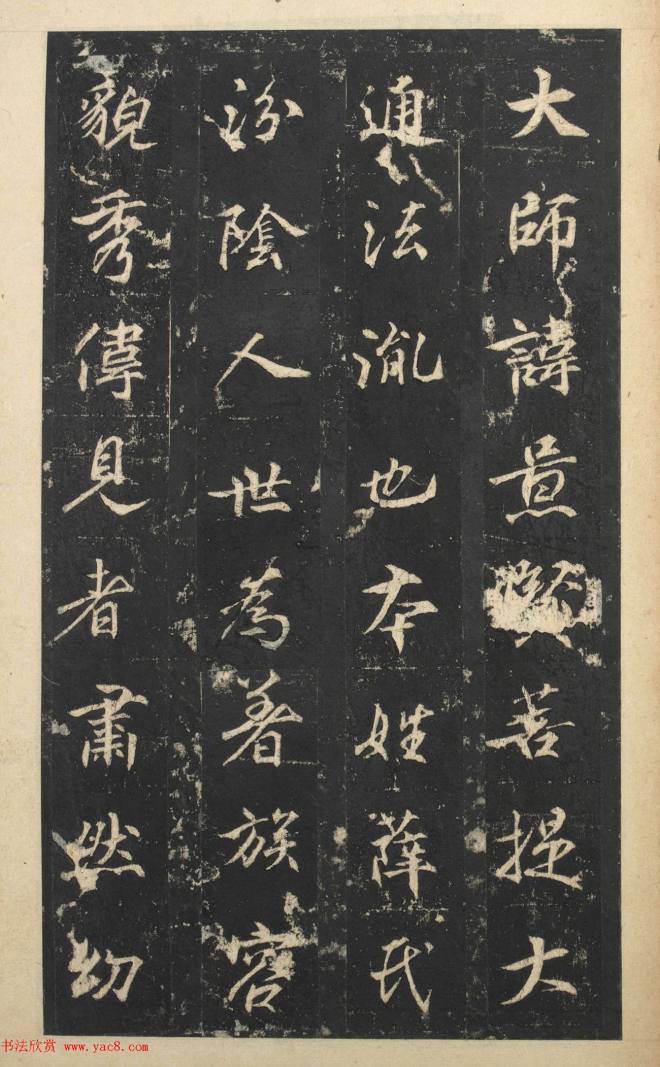 大師諱景菩提大
通法胤也本姓薛氏
汾陰人世為著族容
貌秀偉見者肅然幼
书法欣赏 www.yac8.com